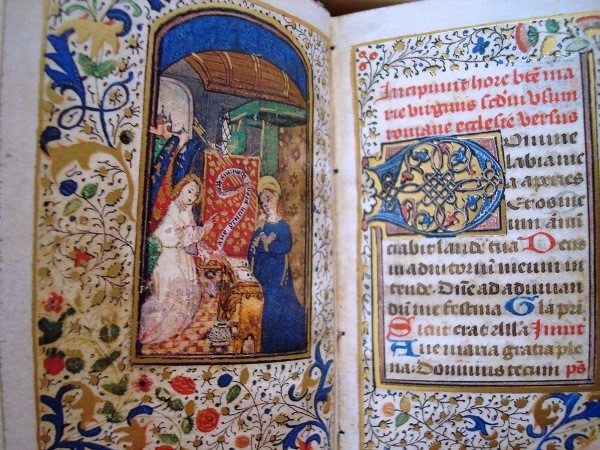 Incipiunt hore bte ma
rie virginis scdm vsum
romane ecclesie versus
Domine
labia me
a aperies
Et os me
um anū
ciabit laudē tuā Deus
in adiutoriū meum in
tende. Dūe ad adiuuan
dum me festina Gla pri
Sicut erat alla Inuit
Aue maria gratia ple
na. Dominus tecum ps